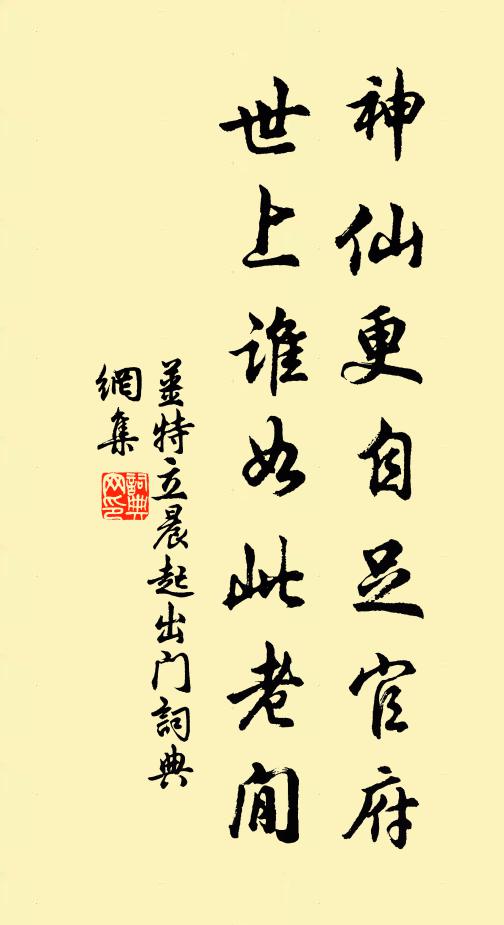 神仙更自足官府
世上誰如此老閒
姜特立晨起出门詞典
網集
詞典網印